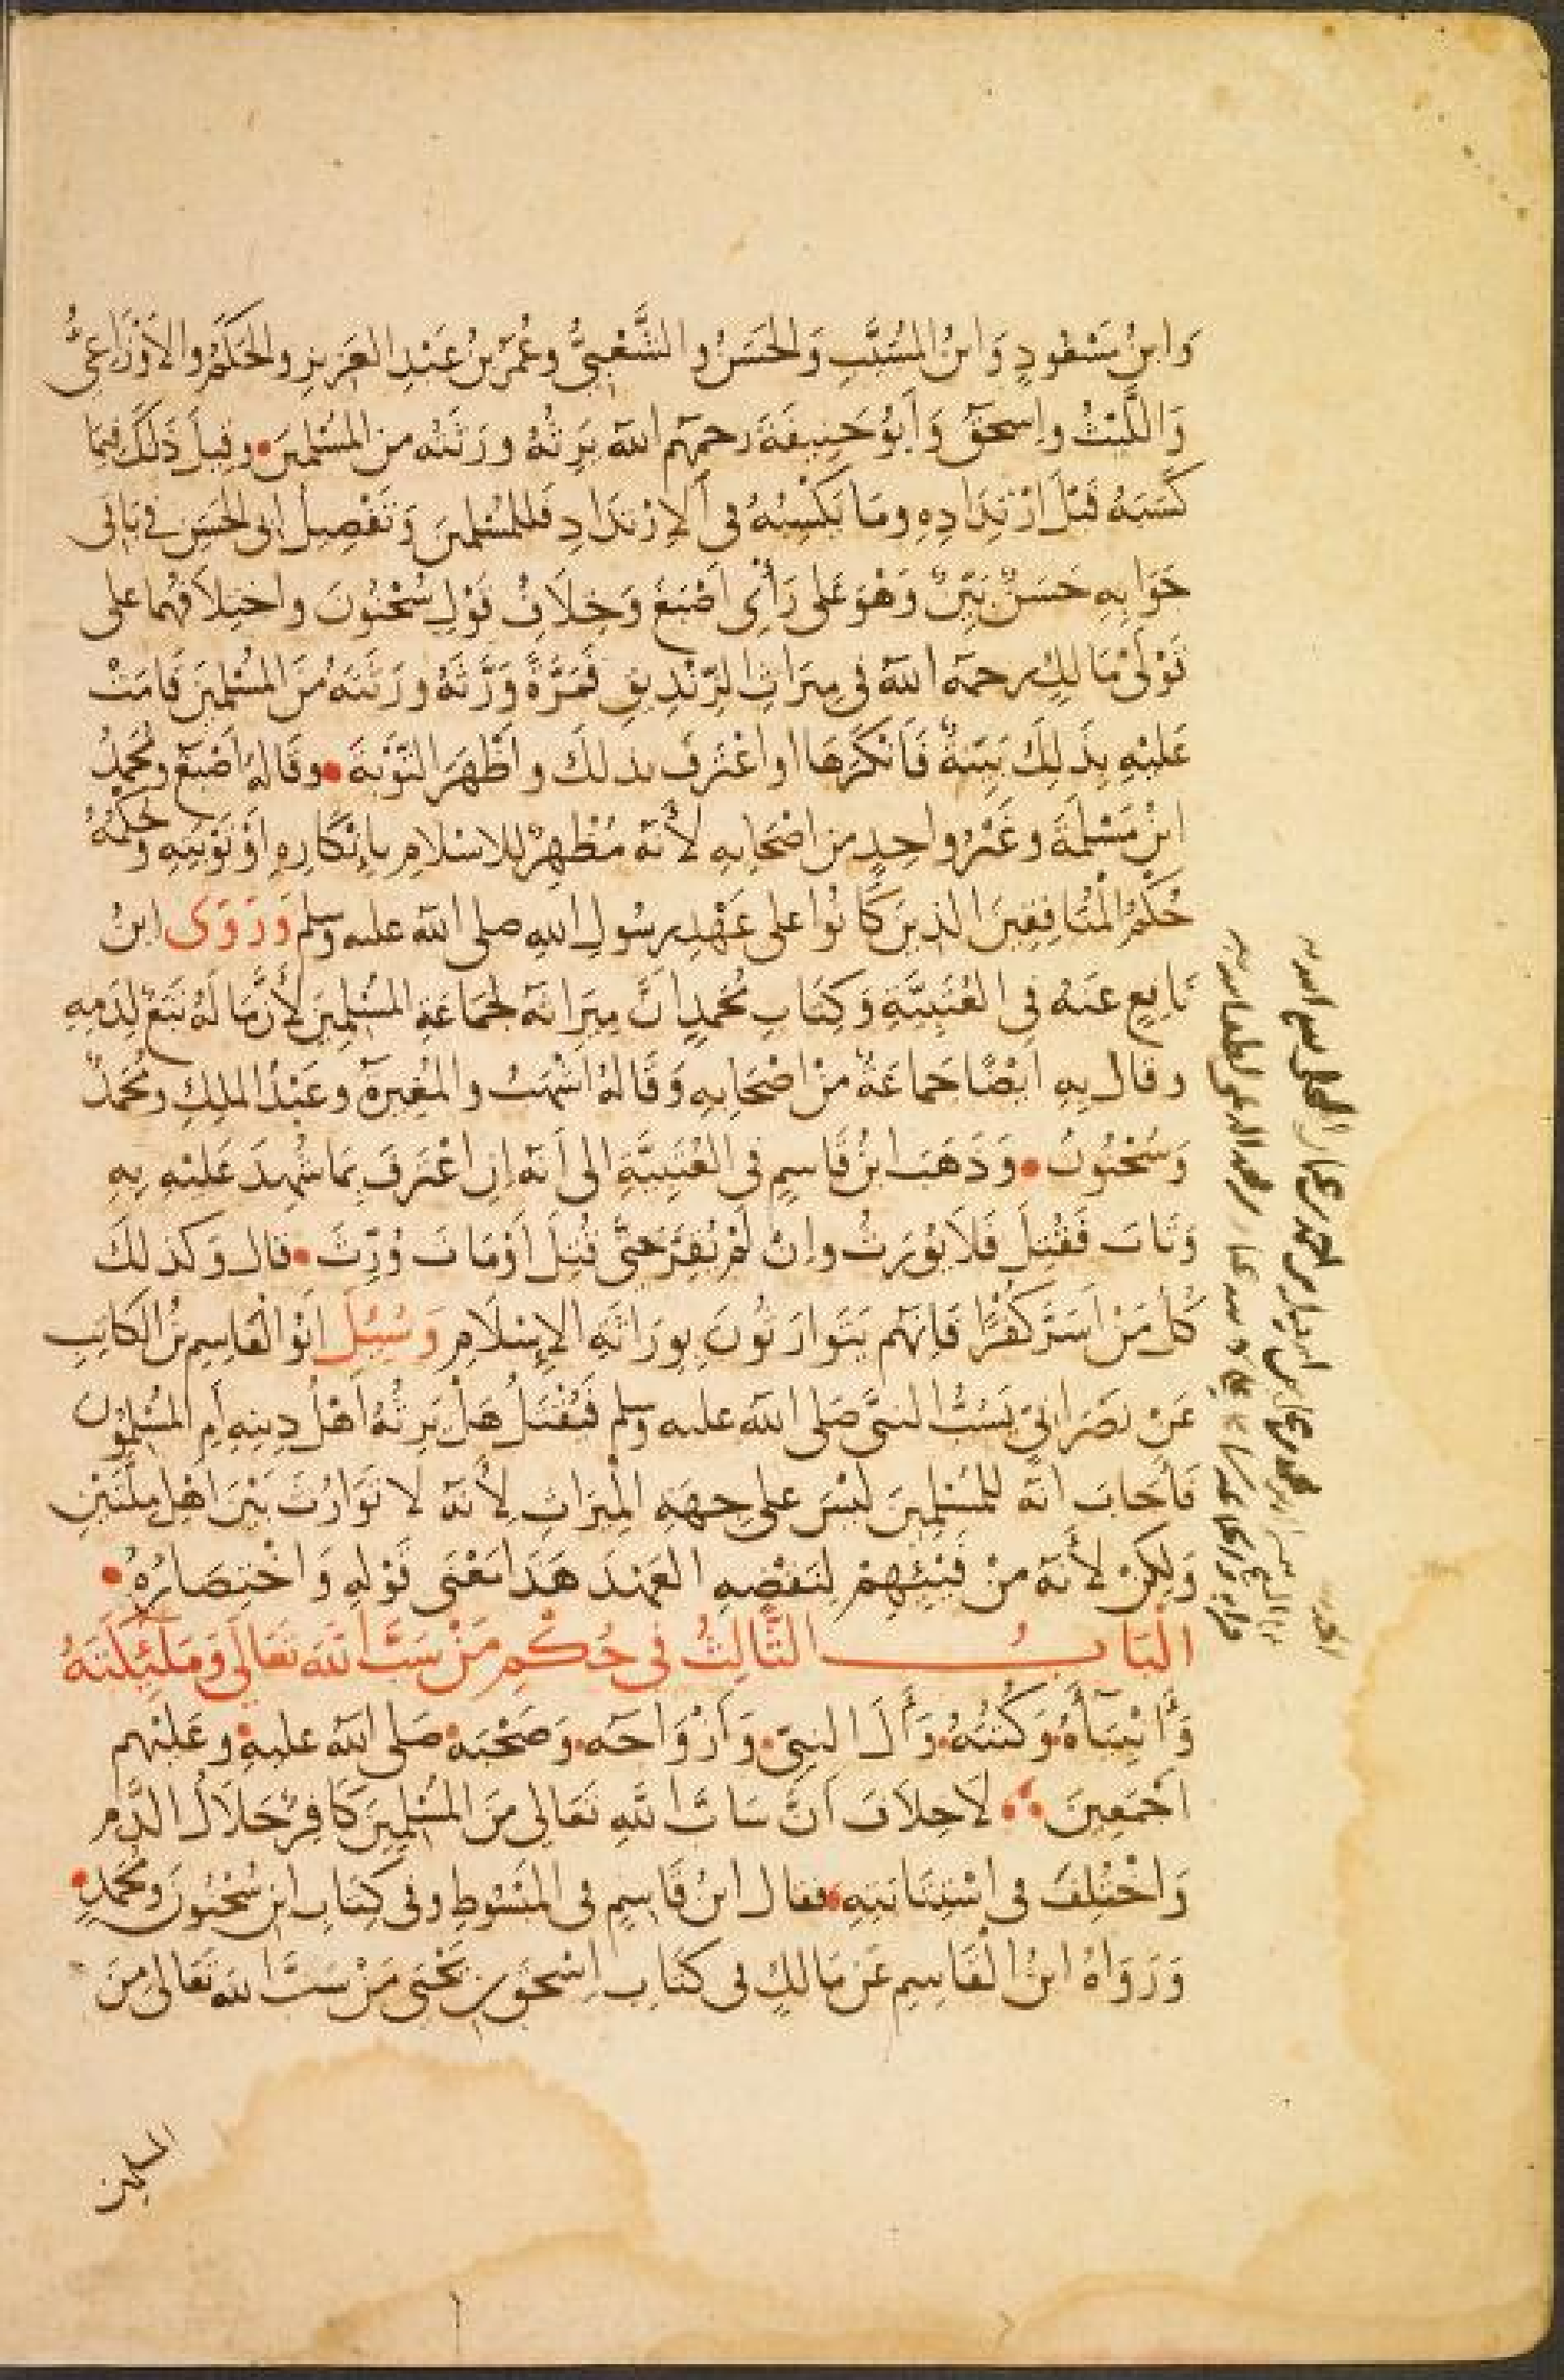 وَابنُ مَسْعُودٍ وَابنُ المُسَيَّبِ وَالحَسَنُ والشَّعْبِيُّ وعُمَرُ بنُ عَبْدِ العَزِيزِ والحَكَمُ والأَوْزَاعِيُّ
وَاللَّيْثُ وإسحَقُ وَأَبُو حَنِيفَةَ رحمهم الله يَرِثُهُ ورَثَتُه من المُسْلِمِينَ • وقِيلَ ذَلِكَ فِيمَا
كَسَبَهُ قَبْلَ ارْتِدَادِهِ ومَا يَكْسِبُهُ فى الارْتِدَادِ فَلِلْمُسْلِمِينَ وَتَفْصِيلُ ابى الحَسَنِ فى بَاقِى
جَوَابِهِ حَسَنٌ بَيِّنٌ وَهْوَ عَلى رَأْىِ اَصْبَغَ وَخِلَافُ قَوْلِ سُحْنُونَ واختِلَافُهُما على
قَوْلَىْ مَالِكٍ رحمه الله فى مِيرَاثِ الزِّنْدِيقِ فَمَرَّةً وَرَّثَهُ ورَثَتَهُ مِنَ المُسْلِمِينَ قَامَتْ
عَلَيْهِ بِذَلِكَ بَيِّنَةٌ فَأَنْكَرَهَا اواعْتَرَفَ بذلكَ واَظْهَرَ التَّوْبَةَ • وقَالهُ اَصْبَغُ ومُحَمَّدُ
ابنُ مَسْلَمَةَ وغَيْرُ واحِدٍ من اصْحَابِهِ لأَنَّهُ مُظْهِرٌ للاسْلَامِ بِإِنْكَارِهِ أَوْتَوْبَتِهِ وَحُكْمُهُ
حُكْمُ الْمُنَافِقِينَ الذِينَ كَانُوا على عَهْدِ رسُولِ اللهِ صلى الله عليه وسلم وَرَوَى ابنُ
نَافِعٍ عَنهُ فى العُتْبِيَّةِ وَكِتَابِ مُحَمدٍ انَّ مِيرَاثَهُ لجمَاعَةِ المُسْلِمِينَ لأَنَّ مَالَهُ تَبَعٌ لِدَمِهِ
وقال بِهِ ايْضًا جماعَةٌ مِنْ اصْحَابِهِ وَقَالهُ اَشْهَبُ والمُغِيرَةُ وعَبْدُ الملِكِ ومُحَمدٌ
وَسُحْنُونُ • وَذَهَبَ ابنُ قَاسِمٍ فى العُتْبِيَّةِ الى أَنَّهُ اِنِ اعْتَرَفَ بِمَا شُهِدَ عَلَيْهِ بِهِ
وَتَابَ فَقُتِلَ فَلَا يُورَثُ وإنْ لَمْ يُقِرَّ حَتَّى قُتِلَ أَوْمَاتَ وُرِّثَ • قال وَكَذلكَ
كُلُّ مَنْ اَسَرَّ كُفْرًا فَانَّهُم يَتَوَارَثُونَ بِوِرَاثَةِ الإسْلَامِ وَسُئِلَ ابُوالْقَاسِمِ بنُ الكَاتِبِ
عَنْ نَصْرَانىٍّ يَسُبُّ النبىَّ صَلى الله عليه وسلم فَيُقْتَلُ هَلْ يَرِثُهُ أَهْلُ دِينِهِ أمِ المُسْلِمُونَ
فَأَجابَ انَّهُ للمُسْلِمِينَ لَيْسَ على جِهَةِ الْمِيرَاثِ لأَنَّهُ لا تَوَارُثَ بَيْنَ اهْلِ مِلَّتَيْنِ
وَلَكِنْ لأَنَّهُ مِنْ فَيْئِهِمْ لِنَقْضِهِ العَهْدَ هَذَا مَعْنَى قَوْلِهِ وَاخْتِصَارُهُ •
الْبَابُ الثَّالِثُ فى حُكْمِ مَنْ سَبَّ اللهَ تَعَالَى وَمَلَئِكَتَهُ
وَأَنْبِيَآءَهُ • وَكُتُبَهُ • وَآلَ النبىِّ • وَأَزْوَاجَه • وَصَحْبَه • صَلى الله عليه وعَلَيْهِم
اَجْمَعِينَ • لَا خِلَافَ اَنَّ سَابَّ اللهِ تَعَالى مِنَ المُسْلِمِينَ كَافِرٌ حَلَالُ الدَّمِ
وَاخْتُلِفَ فى اسْتِتَابَتِهِ • فقال ابنُ قَاسِمٍ فى المَبْسُوطِ وفى كِتَابِ ابنِ سُحْنُونَ ومُحَمدٍ •
وَرَوَاهُ ابنُ الْقَاسِمِ عَن مَالكٍ فى كتَابِ اِسْحَقَ بنِ يَحْيَى مَنْ سَبَّ اللهَ تَعَالى مِنَ
المسلمين